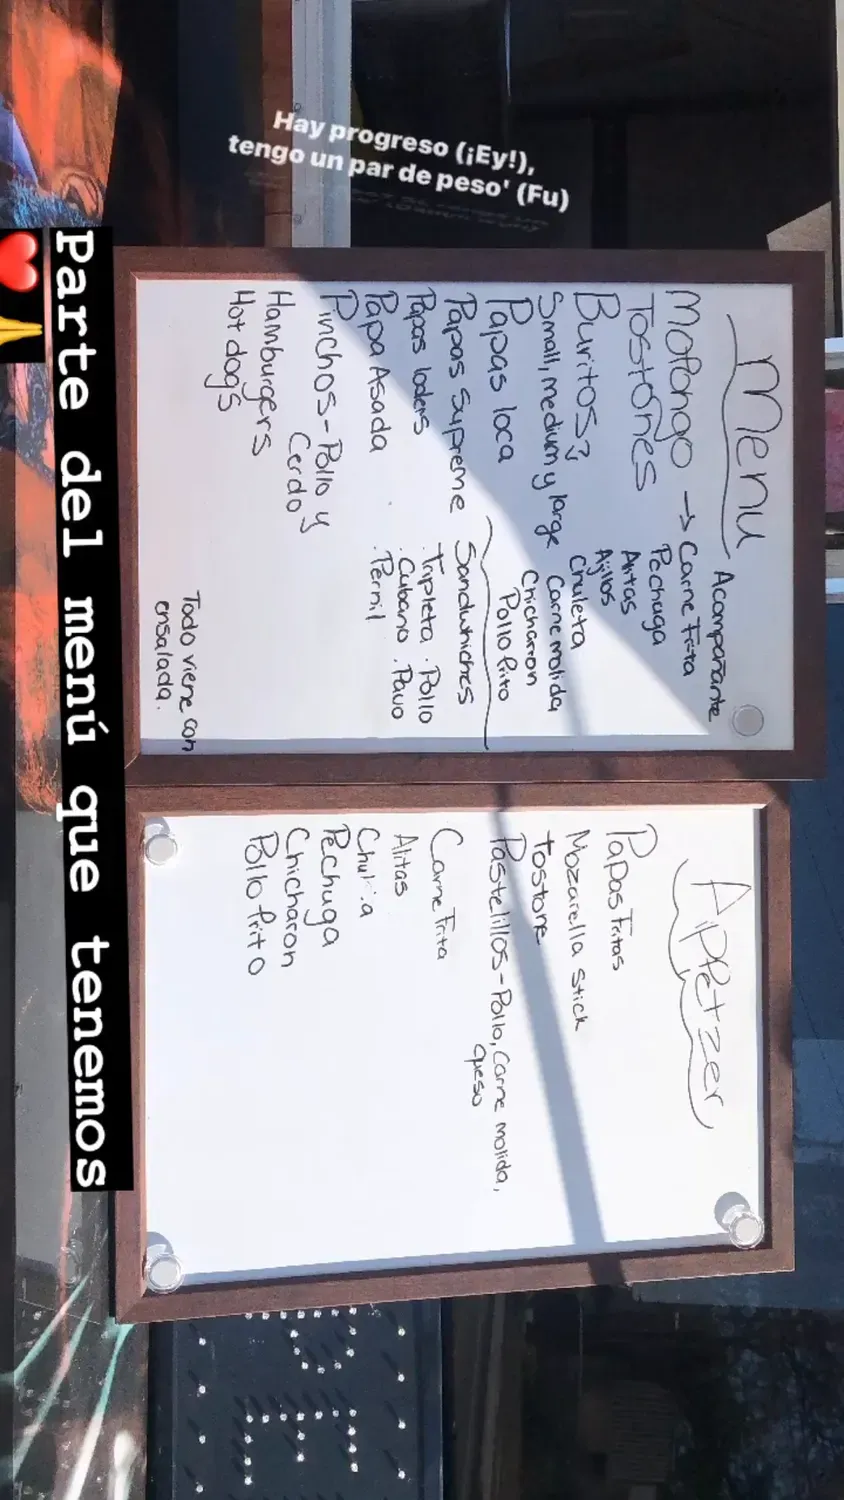 Hay progreso (¡Ey!),
tengo un par de peso' (Fu)
Menu
Mofongo → Carne Frita
Tostones
Buritos?
Small, medium y large
Papas loca
Papas Supreme
Papas loders
Papa Asada
Pinchos - Pollo y
Cerdo
Hamburgers
Hot dogs
Acompañante
Pechuga
Alitas
Ajillos
Chuleta
Carne molida
Chicharon
Pollo frito
Sandwhiches
. Tripleta . Pollo
. Cubano . Pavo
. Pernil
Todo viene con
ensalada.
Aippetzer
Papas Fritas
Mozarella Stick
tostone
Pastelillos - Pollo, Carne molida,
queso
Carne Frita
Alitas
Pechuga
Chicharon
Pollo frito
Parte del menú que tenemos